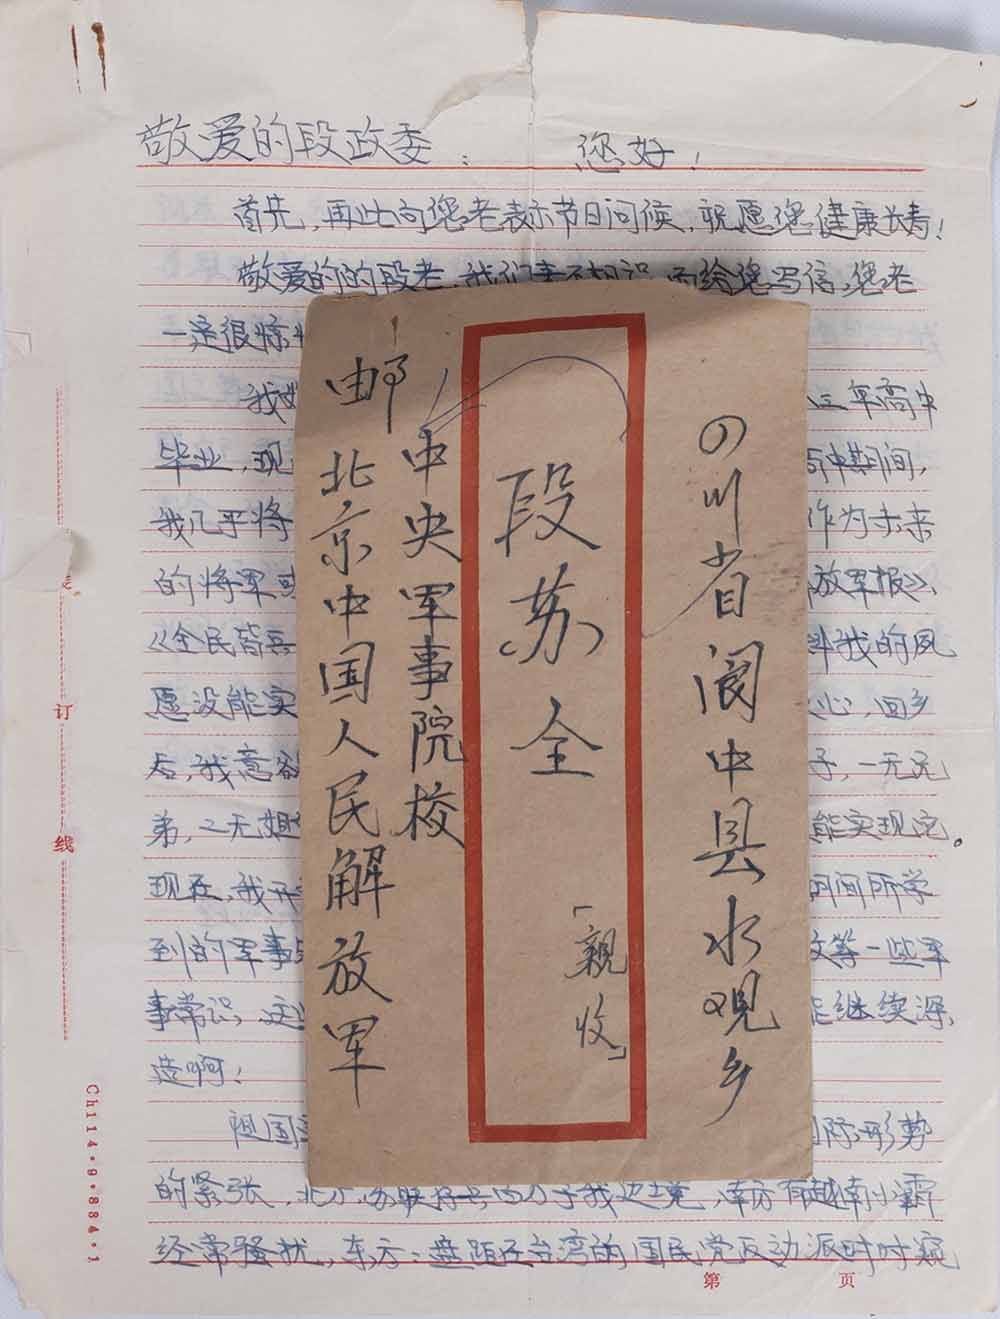 敬爱的段政委：您好！
首先，再此向您老表示节日问候，祝愿您健康长寿！
敬爱的的段老，我们素不相识，而给您写信，您老
一定很惊
我
三年高中
毕业，现
高中期间，
我几乎将
作为未来
的将军或
放军报》、
《全民皆兵
料我的夙
愿没能实
心，回乡
后，我意
子，一无兄
弟，二无姐
能实现完。
现在，我开
期间所学
到的军事
等一些军
事常识，这
能继续深
造啊！
祖国
国际形势
的紧张，北方，苏联
我边境，南方有越南小霸
经常骚扰，东方：盘踞在台湾的国民党反动派时时窥
四川省阆中县水观乡
段苏全
「親收」
中央军事院校
邮北京中国人民解放军
装
订
线
Ch114·9·884·1
第 页